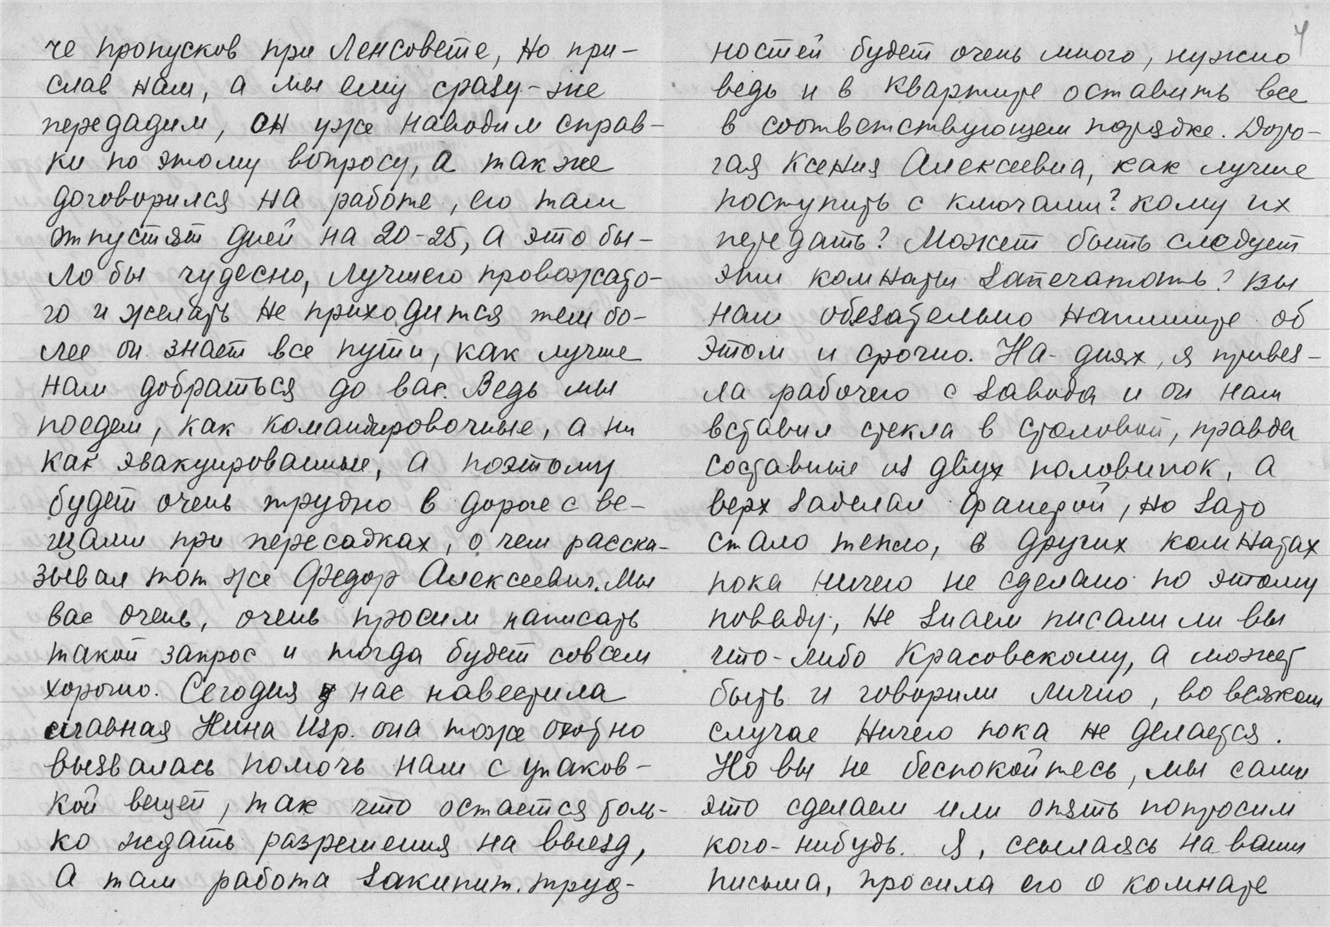 че пропусков при Ленсовете, но при-
слав нам, а мы ему сразу-же
передадим, он уже наводил справ-
ки по этому вопросу, а также
договорился на работе, его там
отпустят дней на 20-25, а это бы-
ло бы чудесно, лучшего провожато-
го и желать не приходится тем бо-
лее он знает все пути, как лучше
нам добраться до вас. Ведь мы
поедем, как командировочные, а ни
как эвакуированные, а поэтому
будет очень трудно в дороге с ве-
щами при пересадках, о чем расска-
зывал тот же Федор Алексеевич. Мы
вас очень, очень просим написать
такой запрос и тогда будет совсем
хорошо. Сегодня у нас навестила
славная Нина Изр. она тоже охотно
вызвалась помочь нам с упаков-
кой вещей, так что остается толь-
ко ждать разрешения на выезд,
а там работа закипит. труд-
4
ностей будет очень много, нужно
ведь и в квартире оставить все
в соответствующем порядке. Доро-
гая Ксения Алексеевна, как лучше
поступить с ключами? кому их
передать? Может быть следует
эти комнаты запечатать? вы
нам обязательно напишите об
этом и срочно. На-днях, я привез-
ла рабочего с завода и он нам
вставил стекла в столовой, правда
составные из двух половинок, а
верх заделал фанерой, но зато
стало тепло, в других комнатах
пока ничего не сделано по этому
поводу, не знаем писали ли вы
что-либо Красовскому, а может
быть и говорили лично, во всяком
случае ничего пока не делается.
Но вы не беспокойтесь, мы сами
это сделаем или опять попросим
кого-нибудь. Я, ссылаясь на ваши
письма, просила его о комнате